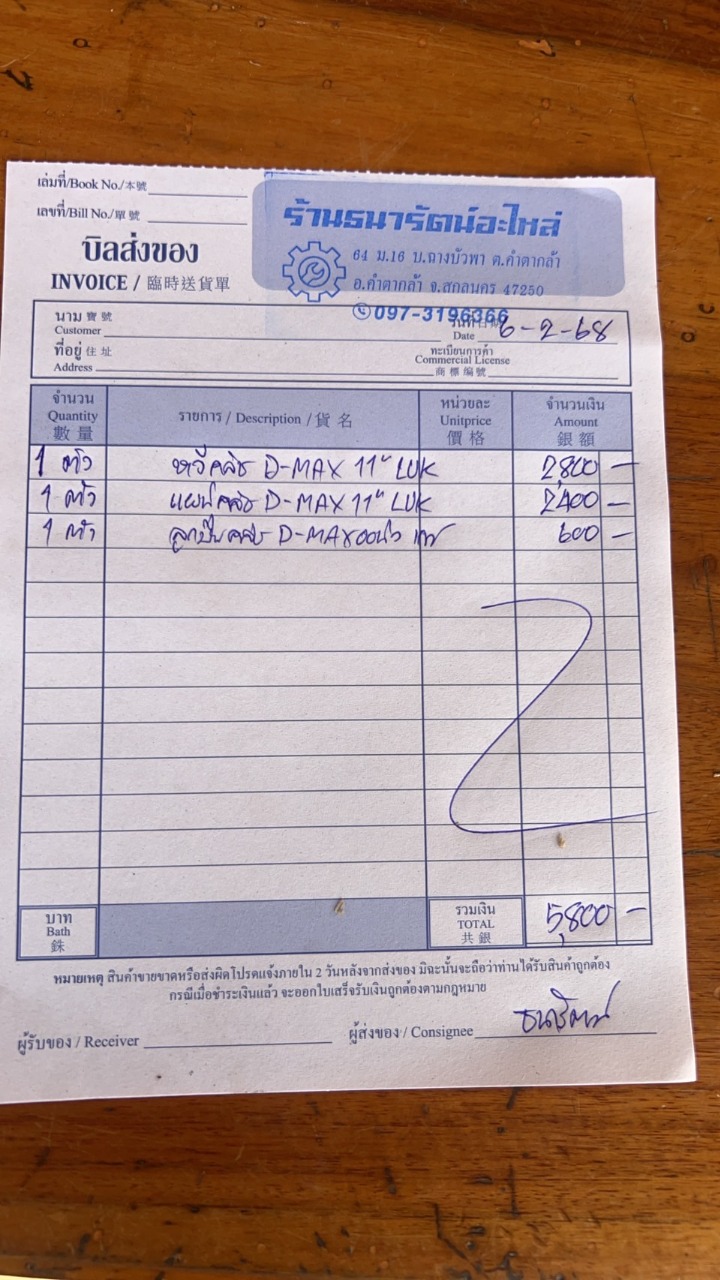 เล่มที่/Book No./本號
เลขที่/Bill No./單 號
บิลส่งของ
INVOICE / 臨時送貨單
ร้านธนารัตน์อะไหล่
64 ม.16 บ.ถางบัวพา ต.คำตากล้า
อ.คำตากล้า จ.สกลนคร 47250
097-3196366
นาม 寶 號
Customer
วันที่
Date 6-2-68
ที่อยู่ 住 址
Address
ทะเบียนการค้า
Commercial License
商 標 編 號
จำนวน Quantity 數 量 รายการ / Description / 貨 名 หน่วยละ Unitprice 價 格 จำนวนเงิน Amount 銀 額
1 ตัว หวีคลัช D-MAX 11" LUK 2,800 -
1 ตัว แผ่นคลัช D-MAX 11" LUK 2,400 -
1 ตัว ลูกปืนคลัช D-MAX 600 -
บาท Bath 銖 รวมเงิน TOTAL 共 銀 5,800 -
หมายเหตุ สินค้าขายขาดหรือส่งผิดโปรดแจ้งภายใน 2 วันหลังจากส่งของ มิฉะนั้นจะถือว่าท่านได้รับสินค้าถูกต้อง
กรณีเมื่อชำระเงินแล้ว จะออกใบเสร็จรับเงินถูกต้องตามกฎหมาย
ผู้รับของ / Receiver ผู้ส่งของ / Consignee